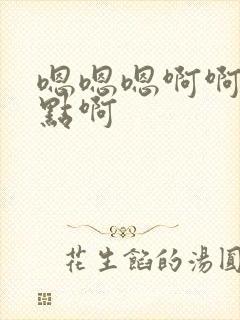 嗯嗯嗯啊啊
點啊
花生餡的湯圓